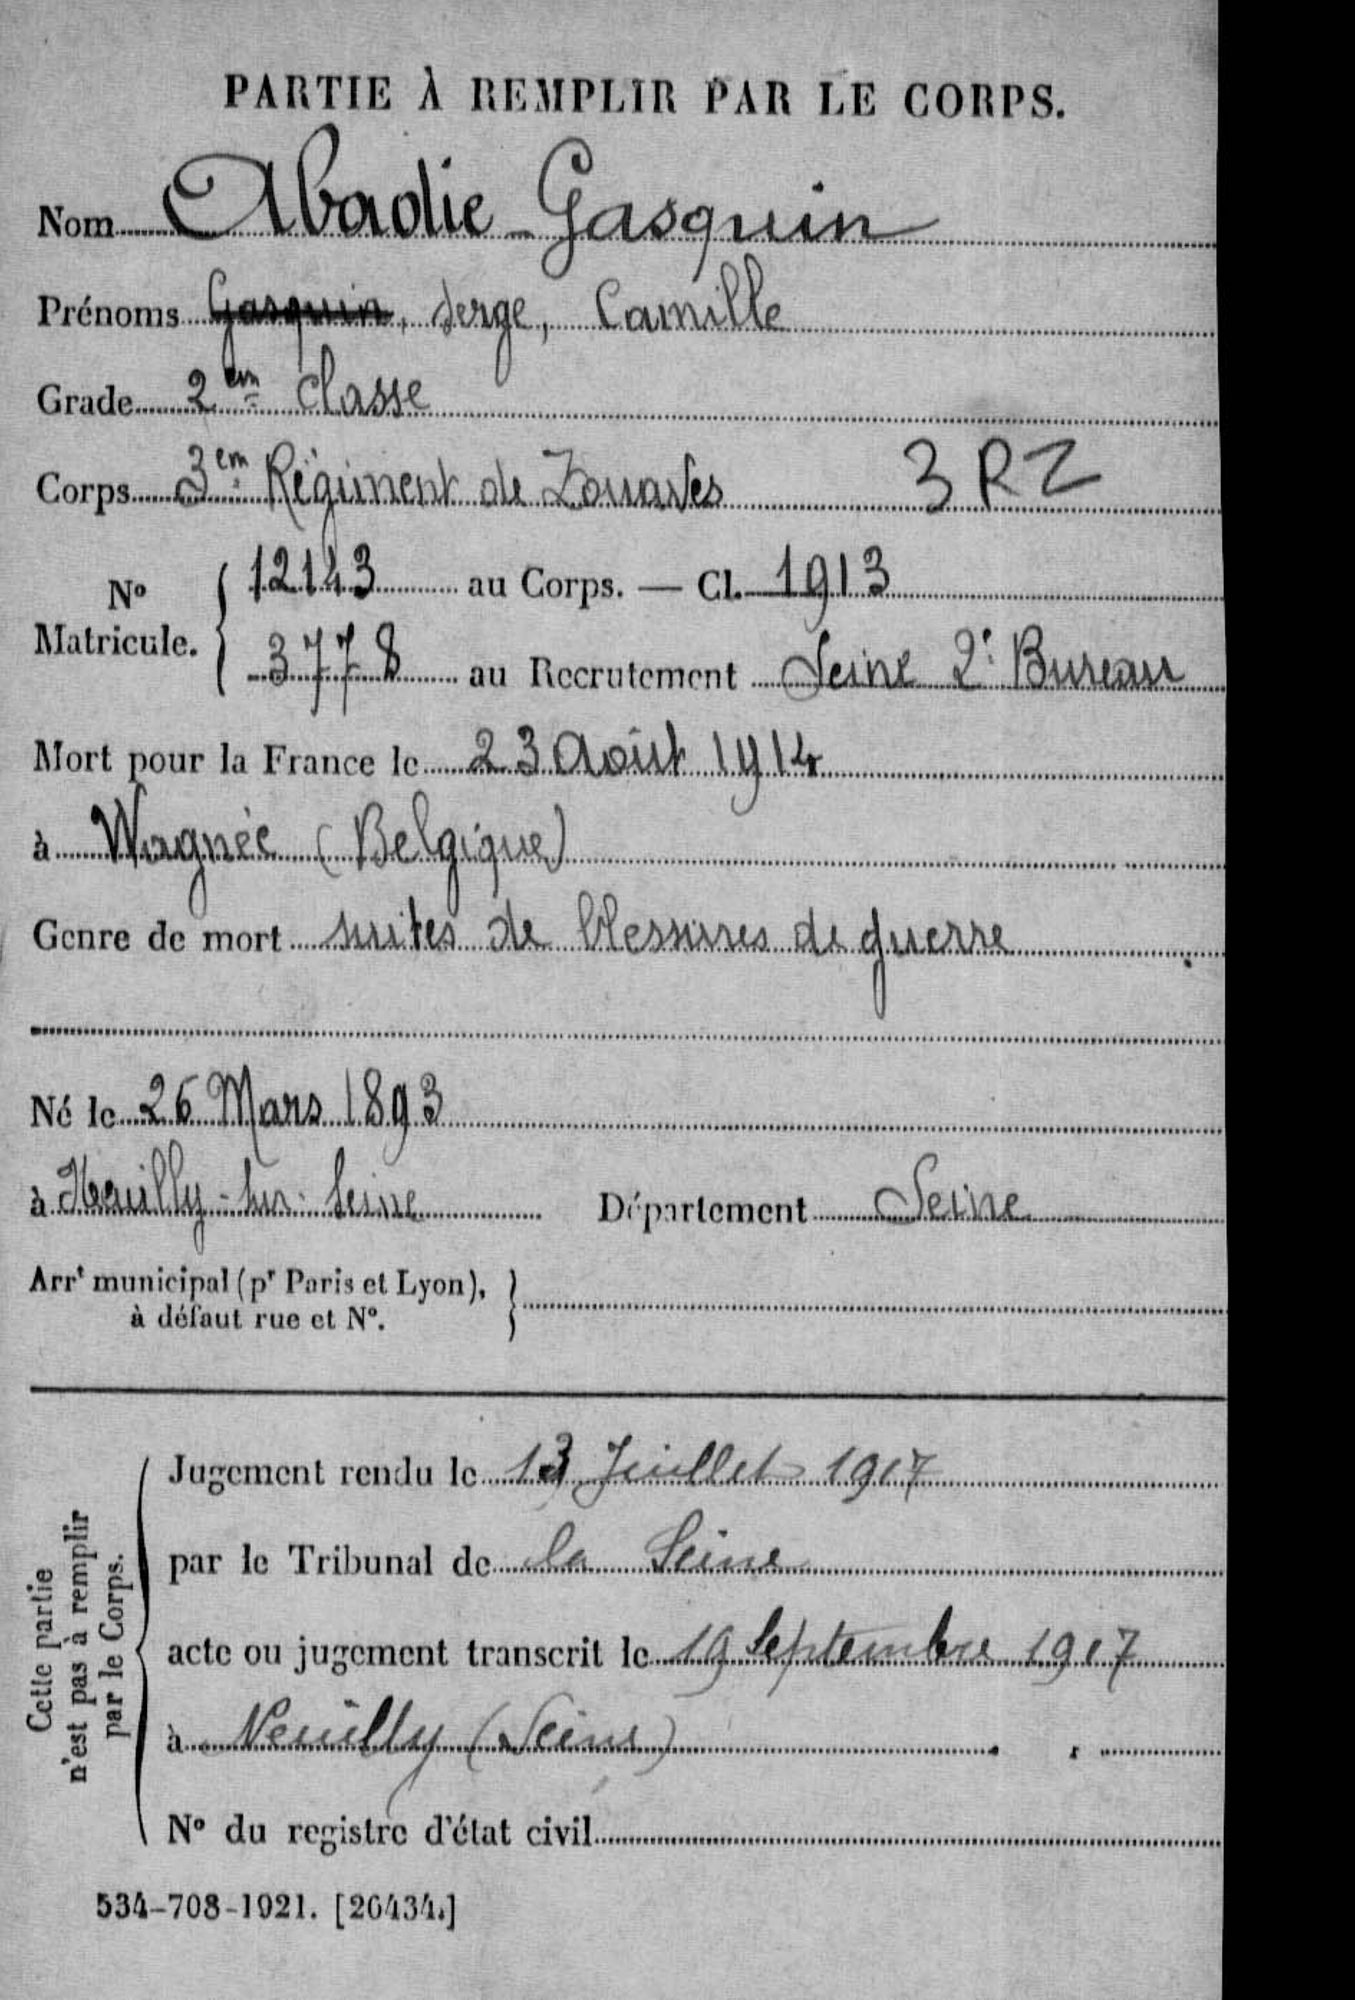 PARTIE À REMPLIR PAR LE CORPS.
Nom Abadie-Gasquin
Prénoms Gasquin, Serge, Camille
Grade 2em classe
Corps 3em Régiment de Zouaves 3 RZ
No Matricule. 12143 au Corps. — Cl. 1913
3778 au Recrutement Seine 2e Bureau
Mort pour la France le 23 Août 1914
à Wagnée (Belgique)
Genre de mort suites de blessures de guerre
Né le 26 Mars 1893
à Neuilly-sur-Seine Département Seine
Arrt municipal (pr Paris et Lyon),
à défaut rue et No.
Cette partie
n'est pas à remplir
par le Corps.
Jugement rendu le 13 Juillet 1917
par le Tribunal de la Seine
acte ou jugement transcrit le 19 Septembre 1917
à Neuilly (Seine)
No du registre d'état civil
534-708-1921. [26434.]